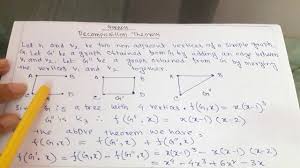 Decomposition Theorem
Let v₁ and v₂ be two non adjacent vertices of a simple graph
G. Let G' be a graph obtained from G by adding an edge between
v₁ and v₂. Let G'' be a graph obtained from G by merging
the vertices v₁ and v₂ together
A B A B A
D C G' C B
G is a tree with 4 vertices, f(G,x) = x(x-1)³
G'' is K₃ f(G'',x) = x(x-1)(x-2)
the above theorem we have
f(G,x) = f(G',x) + f(G'',x)
f(G',x) = f(G,x) - f(G'',x) = x(x-1)³ - x(x-1)(x-2)
= x⁴ - 4x³ + 6x² - 3x